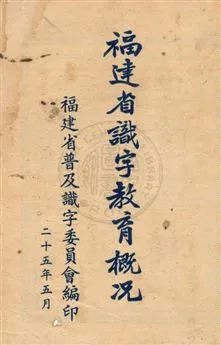 福建省識字教育概况
福建省普及識字委員會編印
二十五年五月